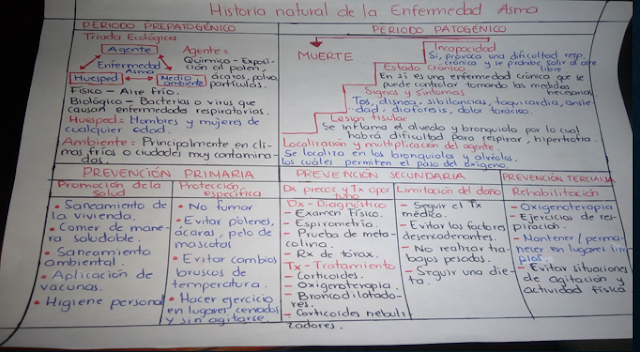 Historia natural de la Enfermedad Asma
PERIODO PREPATOGÉNICO
Triada Ecológica
Agente
Enfermedad
Asma
Huesped
Medio
ambiente
Agente:
Químico - Exposi-
ción al polen,
ácaros, polvo,
partículas.
Físico - Aire frío.
Biológico - Bacterias o virus que
causan enfermedades respiratorias.
Huesped: Hombres y mujeres de
cualquier edad.
Ambiente: Principalmente en cli-
mas fríos o ciudades muy contamina-
das.
PERIODO PATOGÉNICO
MUERTE
Incapacidad
Si, provoca una dificultad resp.
crónica y se prohibe salir al aire
libre
Estado Crónico
En si es una enfermedad crónica que se
puede controlar tomando las medidas
necesarias
Signos y Síntomas
Tos, disnea, sibilancias, taquicardia, ansie
dad, diaforesis, dolor torácico.
Lesion tisular
Se inflama el alveolo y bronquiolo por lo cual
habrá dificultad para respirar, hipertrofia.
Localización y multiplicación del agente
Se localiza en los bronquiolos y alvéolo,
los cuáles permiten el paso del oxígeno
PREVENCIÓN PRIMARIA
Promoción de la
Salud
• Saneamiento de
la vivienda.
• Comer de mane
ra saludable.
• Saneamiento
ambiental.
• Aplicación de
vacunas.
• Higiene personal
Protección
específica
• No fumar
• Evitar pólenes,
ácaras, pelo de
mascotas
• Evitar cambios
bruscos de
temperatura.
• Hacer ejercicio
en lugares cerrados
y sin agitarse
PREVENCIÓN SECUNDARIA
Dx precoz y Tx opor
tuno
Dx - Diagnóstico
- Examen Físico.
- Espirometría.
- Prueba de meta-
colina.
- Rx de tórax.
Tx - Tratamiento
- Corticoides.
- Oxigenoterapia.
- Broncodilatado-
res.
- Corticoides nebuli
zadores.
Limitación del daño
- Seguir el Tx
médico.
- Evitar los factores
desencadenantes.
- No realizar tra-
bajos pesados.
- Seguir una die-
ta.
PREVENCIÓN TERCIARIA
Rehabilitación
- Oxigenoterapia
- Ejercicios de res-
piración.
- Mantener / perma-
necer en lugares lim
pios.
- Evitar situaciones
de agitación y
actividad física